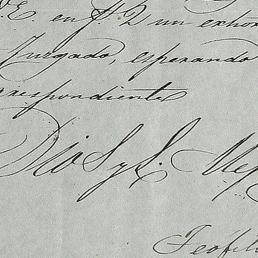 E. en P. D un exhor
Juzgado, esperando
rrespondiente
Dios y L. Mex
Teófil